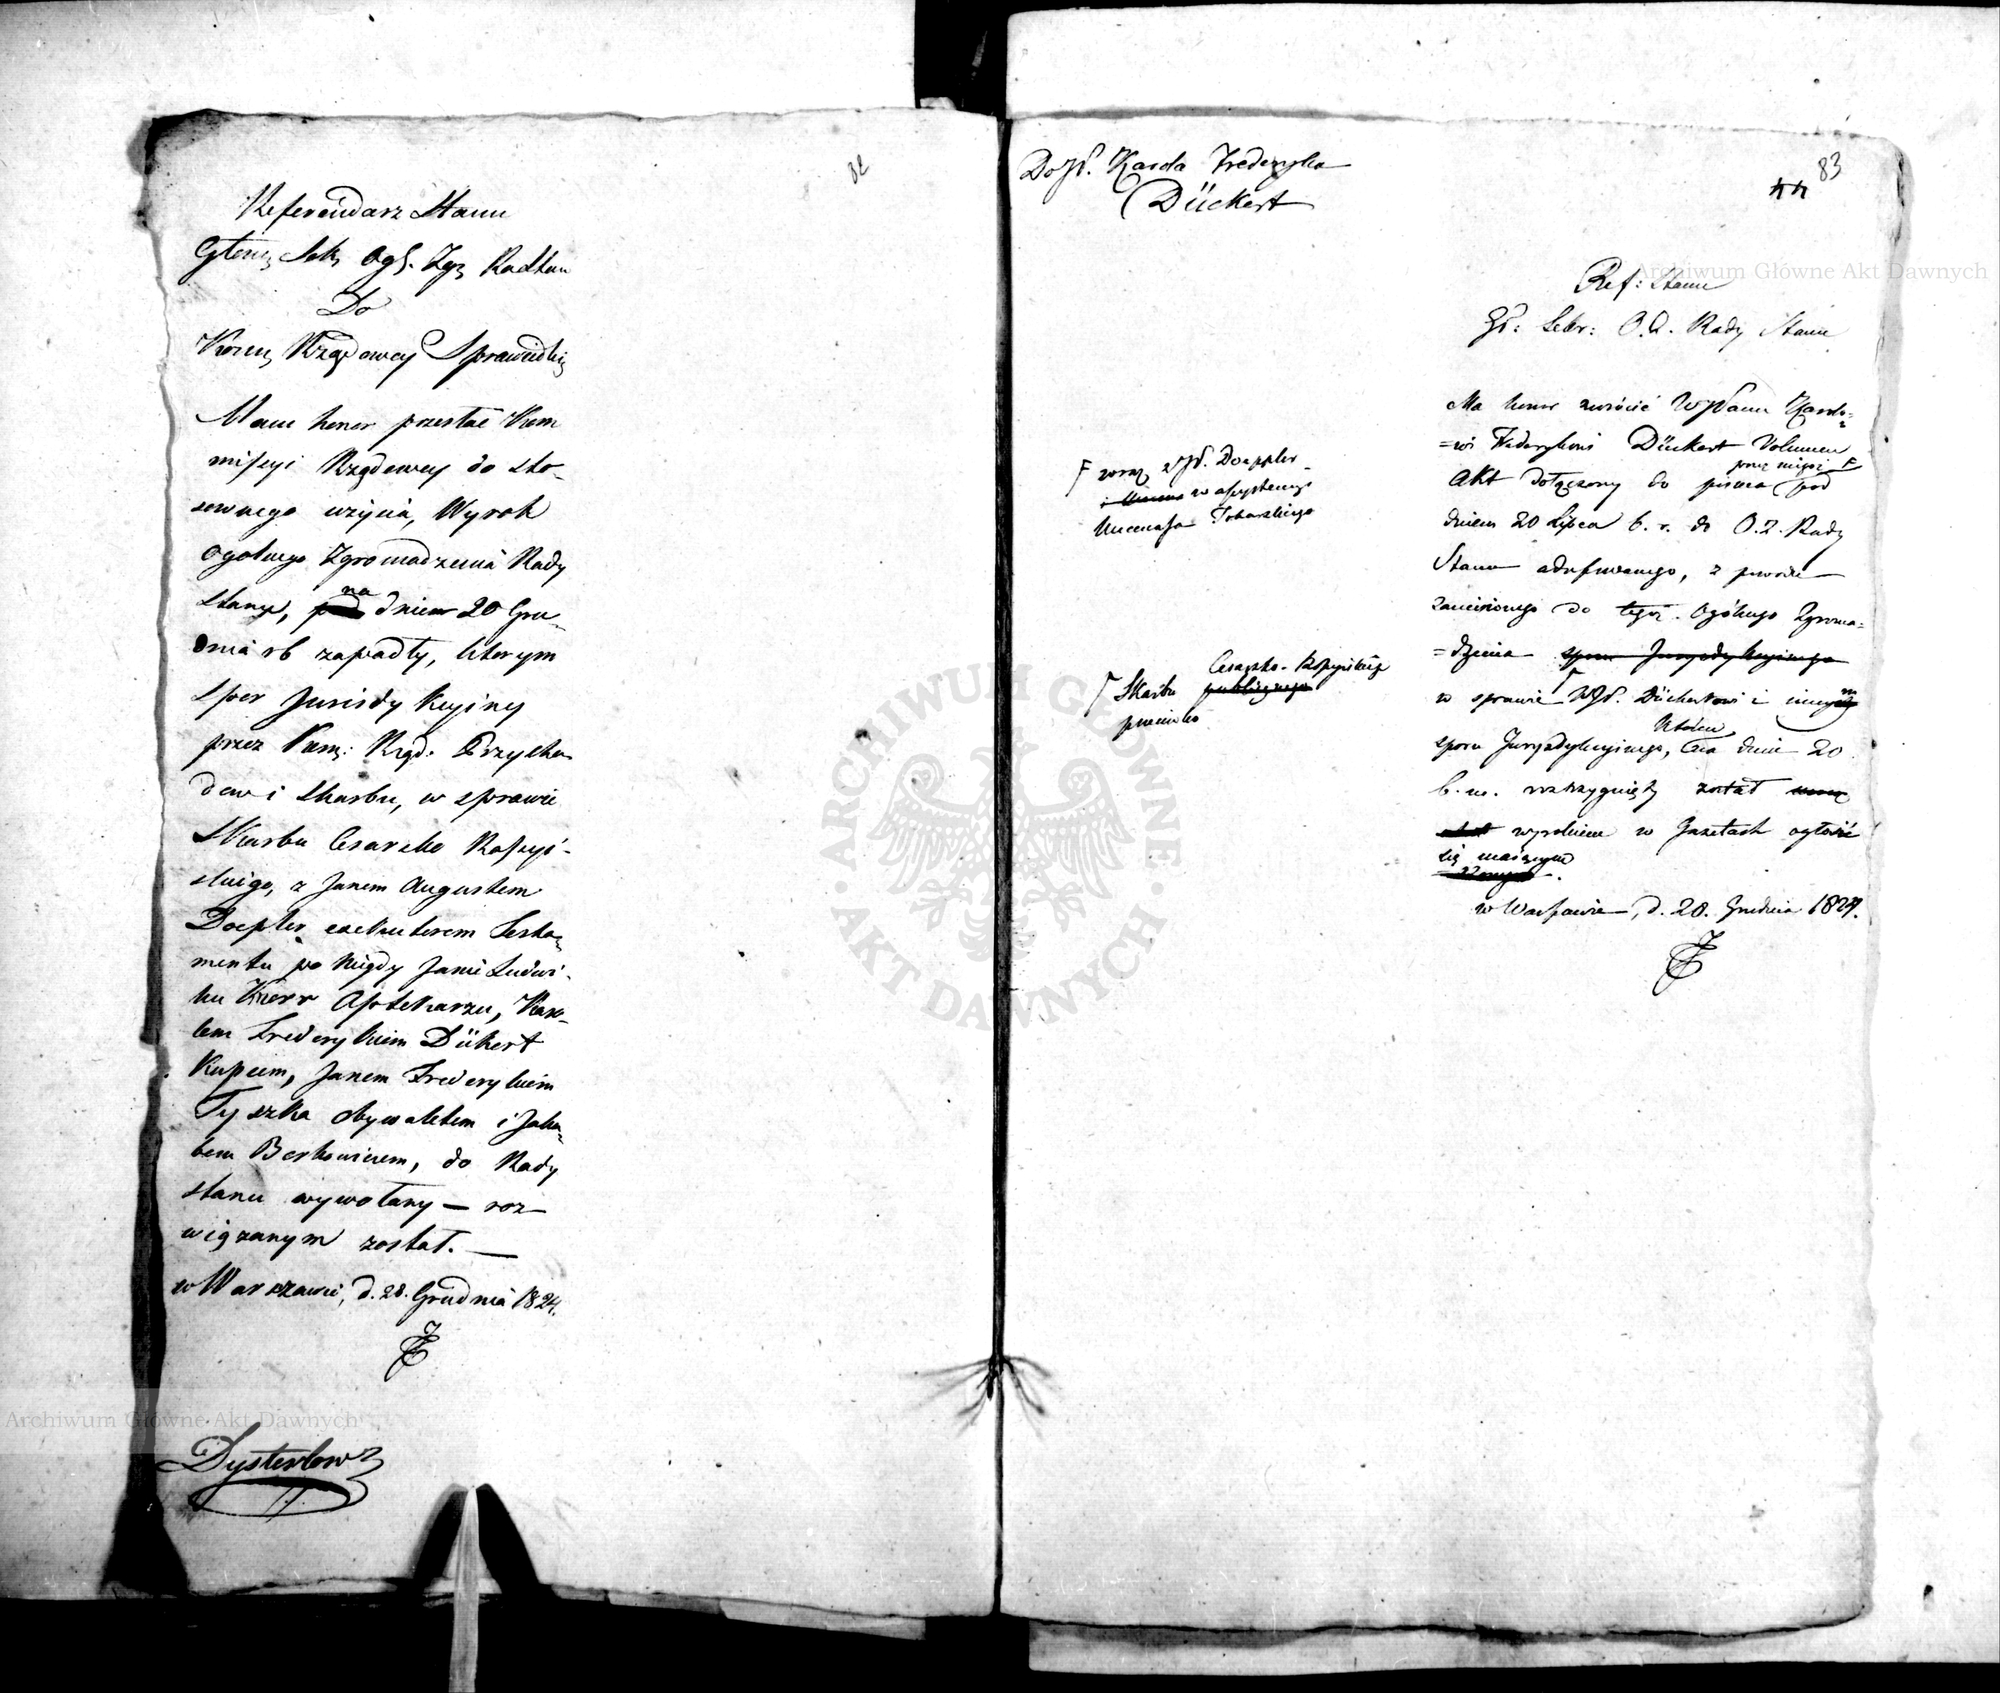 82
Referendarz Stanu
Głów: Sek: Ogl. Zgr: RadStanu
Do
Komis: Rządowey Sprawiedli:
Mam honor przesłać Kom
missyi Rządowey do sto-
sownego użycia, Wyrok
Ogolnego Zgromadzenia Rady
Stanu, na dniem 20 Gru-
dnia rb zapadły, którym
spor Jurisdykcyiny
przez Kom: Rząd. Przycho
dow i Skarbu, w sprawie
Skarbu Cesarsko Rossyi-
skiego, z Janem Augustem
Doepler exekutorem Testa-
mentu po niegdy Janie Ludwi-
ku Aptekarzu, Karo-
lem Fryderykiem Dükert
Kupcem, Janem Frederykiem
Tyszka obywatelem i Jaku-
bem Berkowiczem, do Rady
stanu wywołany — roz
wiązanym został. —
w Warszawie, d. 28. Grudnia 1824.
Dysterlow
83
44
Do JP. Karola Frederyka
Dückert
Archiwum Główne Akt Dawnych
Ref: Stanu
Gł: Sekr: O.Z. Rady Stanu
Ma honor zwrócić WJPanu Karolo-
=wi Fryderykowi Dückert Volumen
Akt dołączony do pisma przez niego pod
dniem 20 Lipca b. r. do O.Z. Rady
Stanu adressowanego, z powodu
zaniesionego do tegoż Ogólnego Zgroma=
=dzenia sporu Jurysdykcyinego
w sprawie WJP. Dückertowi i innym
sporu Jurysdykcyinego, który dnia 20
b. m. rozstrzygnięty został
wyrokiem w Gazetach ogłosić
się maiącym
w Warszawie, d. 28. Grudnia 1824.
wraz z JP. Doeppler
w assystencyi
Mecenasa Tokarskiego
Skarbu Cesarsko-Rossyiskiego publicznego
przeciwko
ARCHIWUM GŁÓWNE
AKT DAWNYCH
Archiwum Główne Akt Dawnych